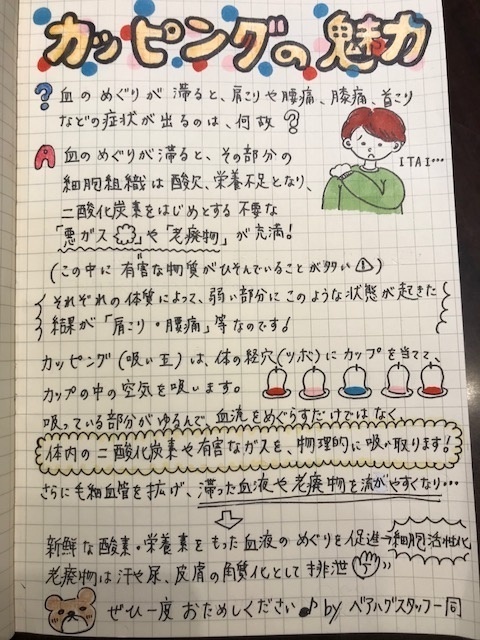 カッピングの魅力
? 血のめぐりが滞ると、肩こりや腰痛、膝痛、首こり
などの症状が出るのは、何故?
A 血のめぐりが滞ると、その部分の
細胞組織は酸欠、栄養不足となり、
二酸化炭素をはじめとする不要な
「悪ガス」や「老廃物」が充満!
ITAI…
(この中に有害な物質がひそんでいることが多い⚠)
それぞれの体質によって、弱い部分にこのような状態が起きた
結果が「肩こり・腰痛」等なのです!
カッピング(吸い玉)は、体の経穴(ツボ)にカップを当てて、
カップの中の空気を吸います。
吸っている部分がゆるんで、血流をめぐらすだけではなく、
体内の二酸化炭素や有害なガスを、物理的に吸い取ります!
さらに毛細血管を拡げ、滞った血液や老廃物を流がやすくなり…
新鮮な酸素・栄養素をもった血液のめぐりを促進→細胞活性化
老廃物は汗や尿、皮膚の角質化として排泄
ぜひ一度おためしください♪ by ベアハグスタッフ一同